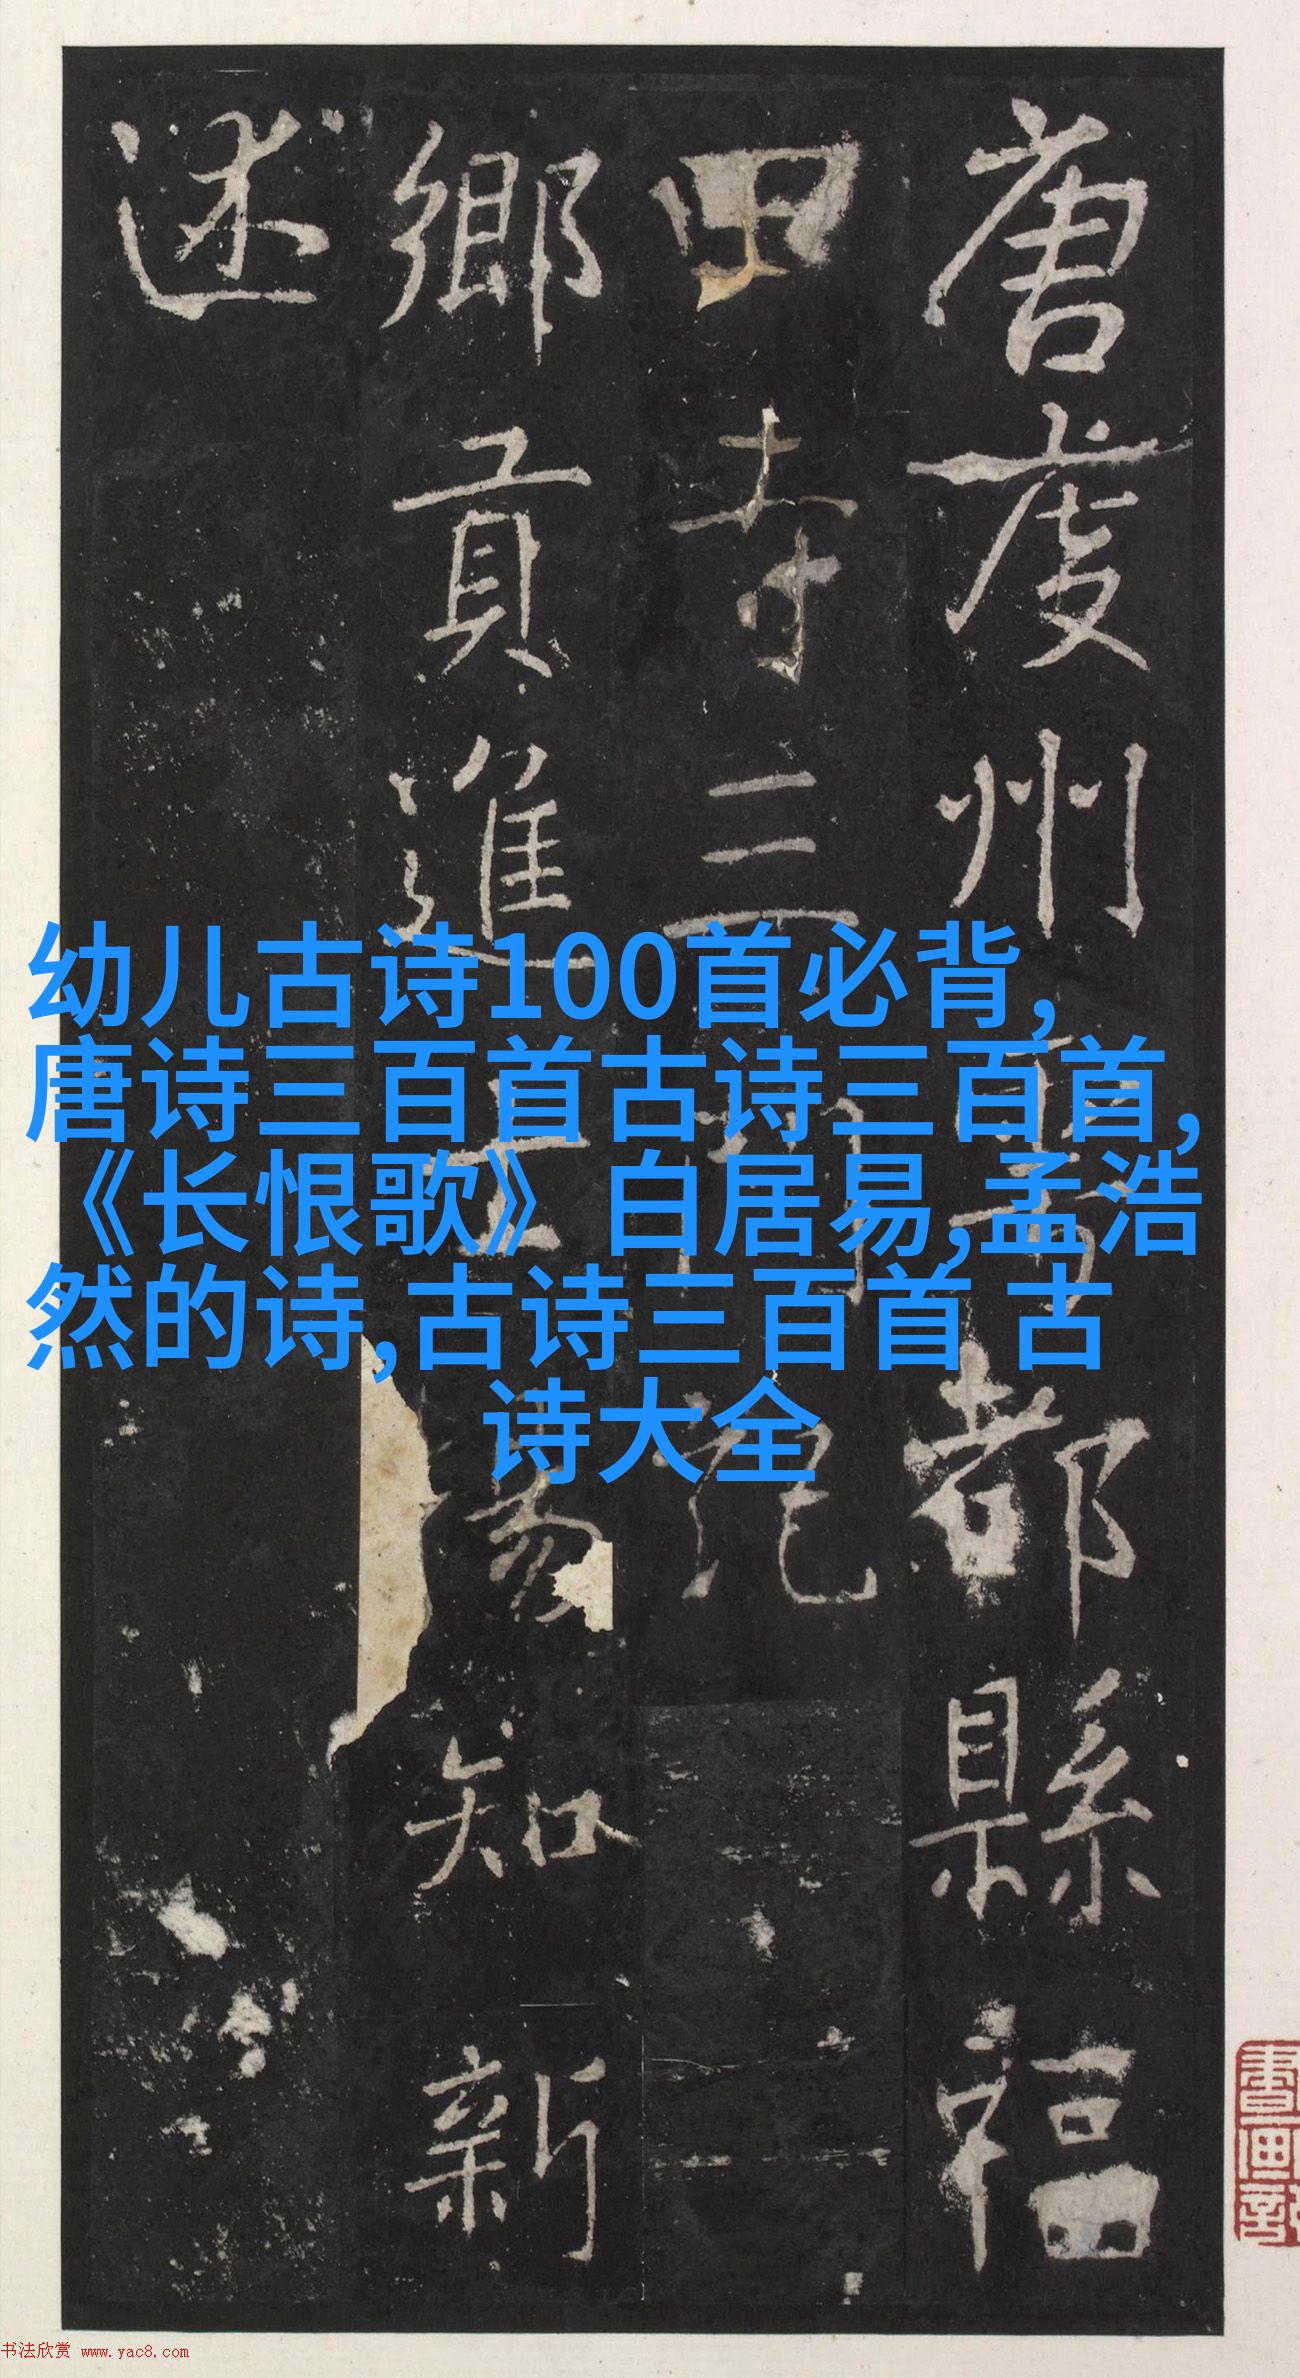 唐虔州
都縣福
田寺三
鄉貢進士
知新
述
幼儿古诗100首必背,
唐诗三百首古诗三百首,
《长恨歌》白居易,孟浩
然的诗,古诗三百首 古
诗大全
书法欣赏 www.yac8.com